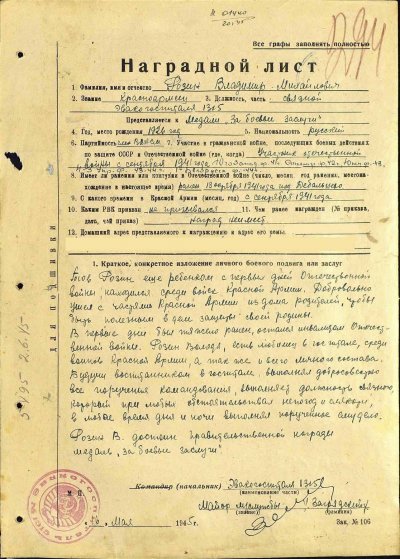 Все графы заполнять полностью
Наградной лист
1. Фамилия, имя и отчество Розин Владимир Михайлович
2. Звание Красноармеец 3. Должность, часть связной
Эвакогоспиталя 1305
Представляется к Медали "За боевые
заслуги"
4. Год, место рождения 1926 год 5. Национальность русский
6. Партийность 7. Участие в гражданской войне, последующих боевых действиях
по защите СССР и Отечественной войне (где, когда) Участник отечественной
войны с сентября 1941 года
8. Имеет ли ранения или контузии в Отечественной войне (число, месяц, год ранения, местона-
хождение в настоящее время) ранен 13 октября 1941 года под
9. С какого времени в Красной Армии (месяц, год) с сентября 1941 года
10. Каким РВК призван не призывался 11. Чем ранее награжден (№ приказа,
дата, чей приказ) наград не имеет
12. Домашний адрес представляемого к награждению и адрес его семьи
для подшивки
1. Краткое, конкретное изложение личного боевого подвига или заслуг
Тов Розин еще ребенком с первых дней Отечественной
войны, находился среди войск Красной Армии. Добровольно
ушел с частями Красной Армии из дома родителей, чтобы
быть полезным в деле защиты своей родины.
В первые дни был тяжело ранен, остался инвалидом Отечест-
венной войны. Розин Володя, есть любимец в госпитале, среди
воинов Красной Армии, а так же и всего личного состава.
Будучи воспитанником в госпитале, выполнял добросовестно
все поручения командования, выполняет должность связного
который при любых обстоятельствах непогод и слякоти,
в любое время дня и ночи выполнял порученное ему дело.
Розин В. достоин правительственной награды
медаль "за боевые заслуги"
Командир (начальник) Эвакогоспиталя 1305
(наименование части)
Майор мед службы
М. П.
Мая 1945 г.
Зак. № 106